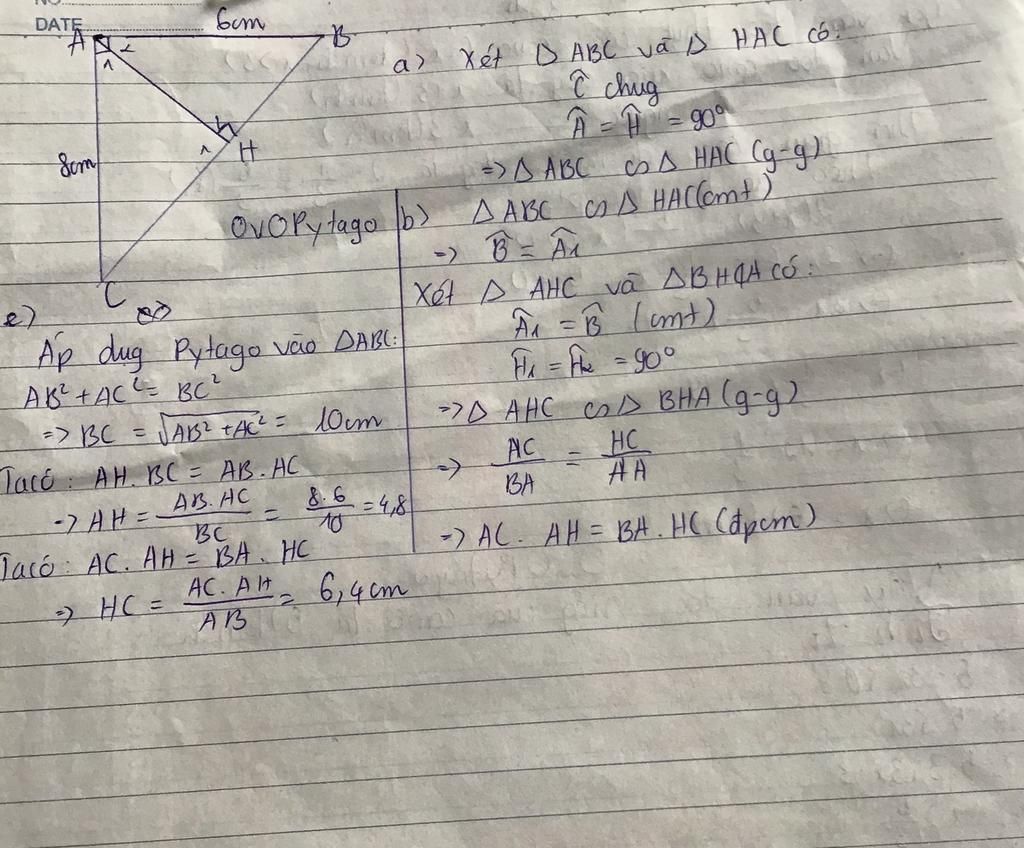 DATE
6cm
A
2
B
1
h
1
H
8cm
C
a) Xét Δ ABC và Δ HAC có:
Ĉ chug
Â = Ĥ = 90°
=> Δ ABC ∽ Δ HAC (g-g)
ÔvÔPytago
b) Δ ABC ∽ Δ HAC (cmt)
=> B̂ = Â₁
Xét Δ AHC và Δ BHA có:
Â₁ = B̂ (cmt)
Ĥ₁ = Ĥ₂ = 90°
=> Δ AHC ∽ Δ BHA (g-g)
=> AC/BA = HC/AA
=> AC. AH = BA. HC (đpcm)
c)
Áp dug Pytago vào ΔABC:
AB² + AC² = BC²
=> BC = √AB² + AC² = 10cm
Tacó: AH. BC = AB. AC
=> AH = AB. AC/BC = 8.6/10 = 4,8
Tacó: AC. AH = BA. HC
=> HC = AC. AH/AB = 6,4cm